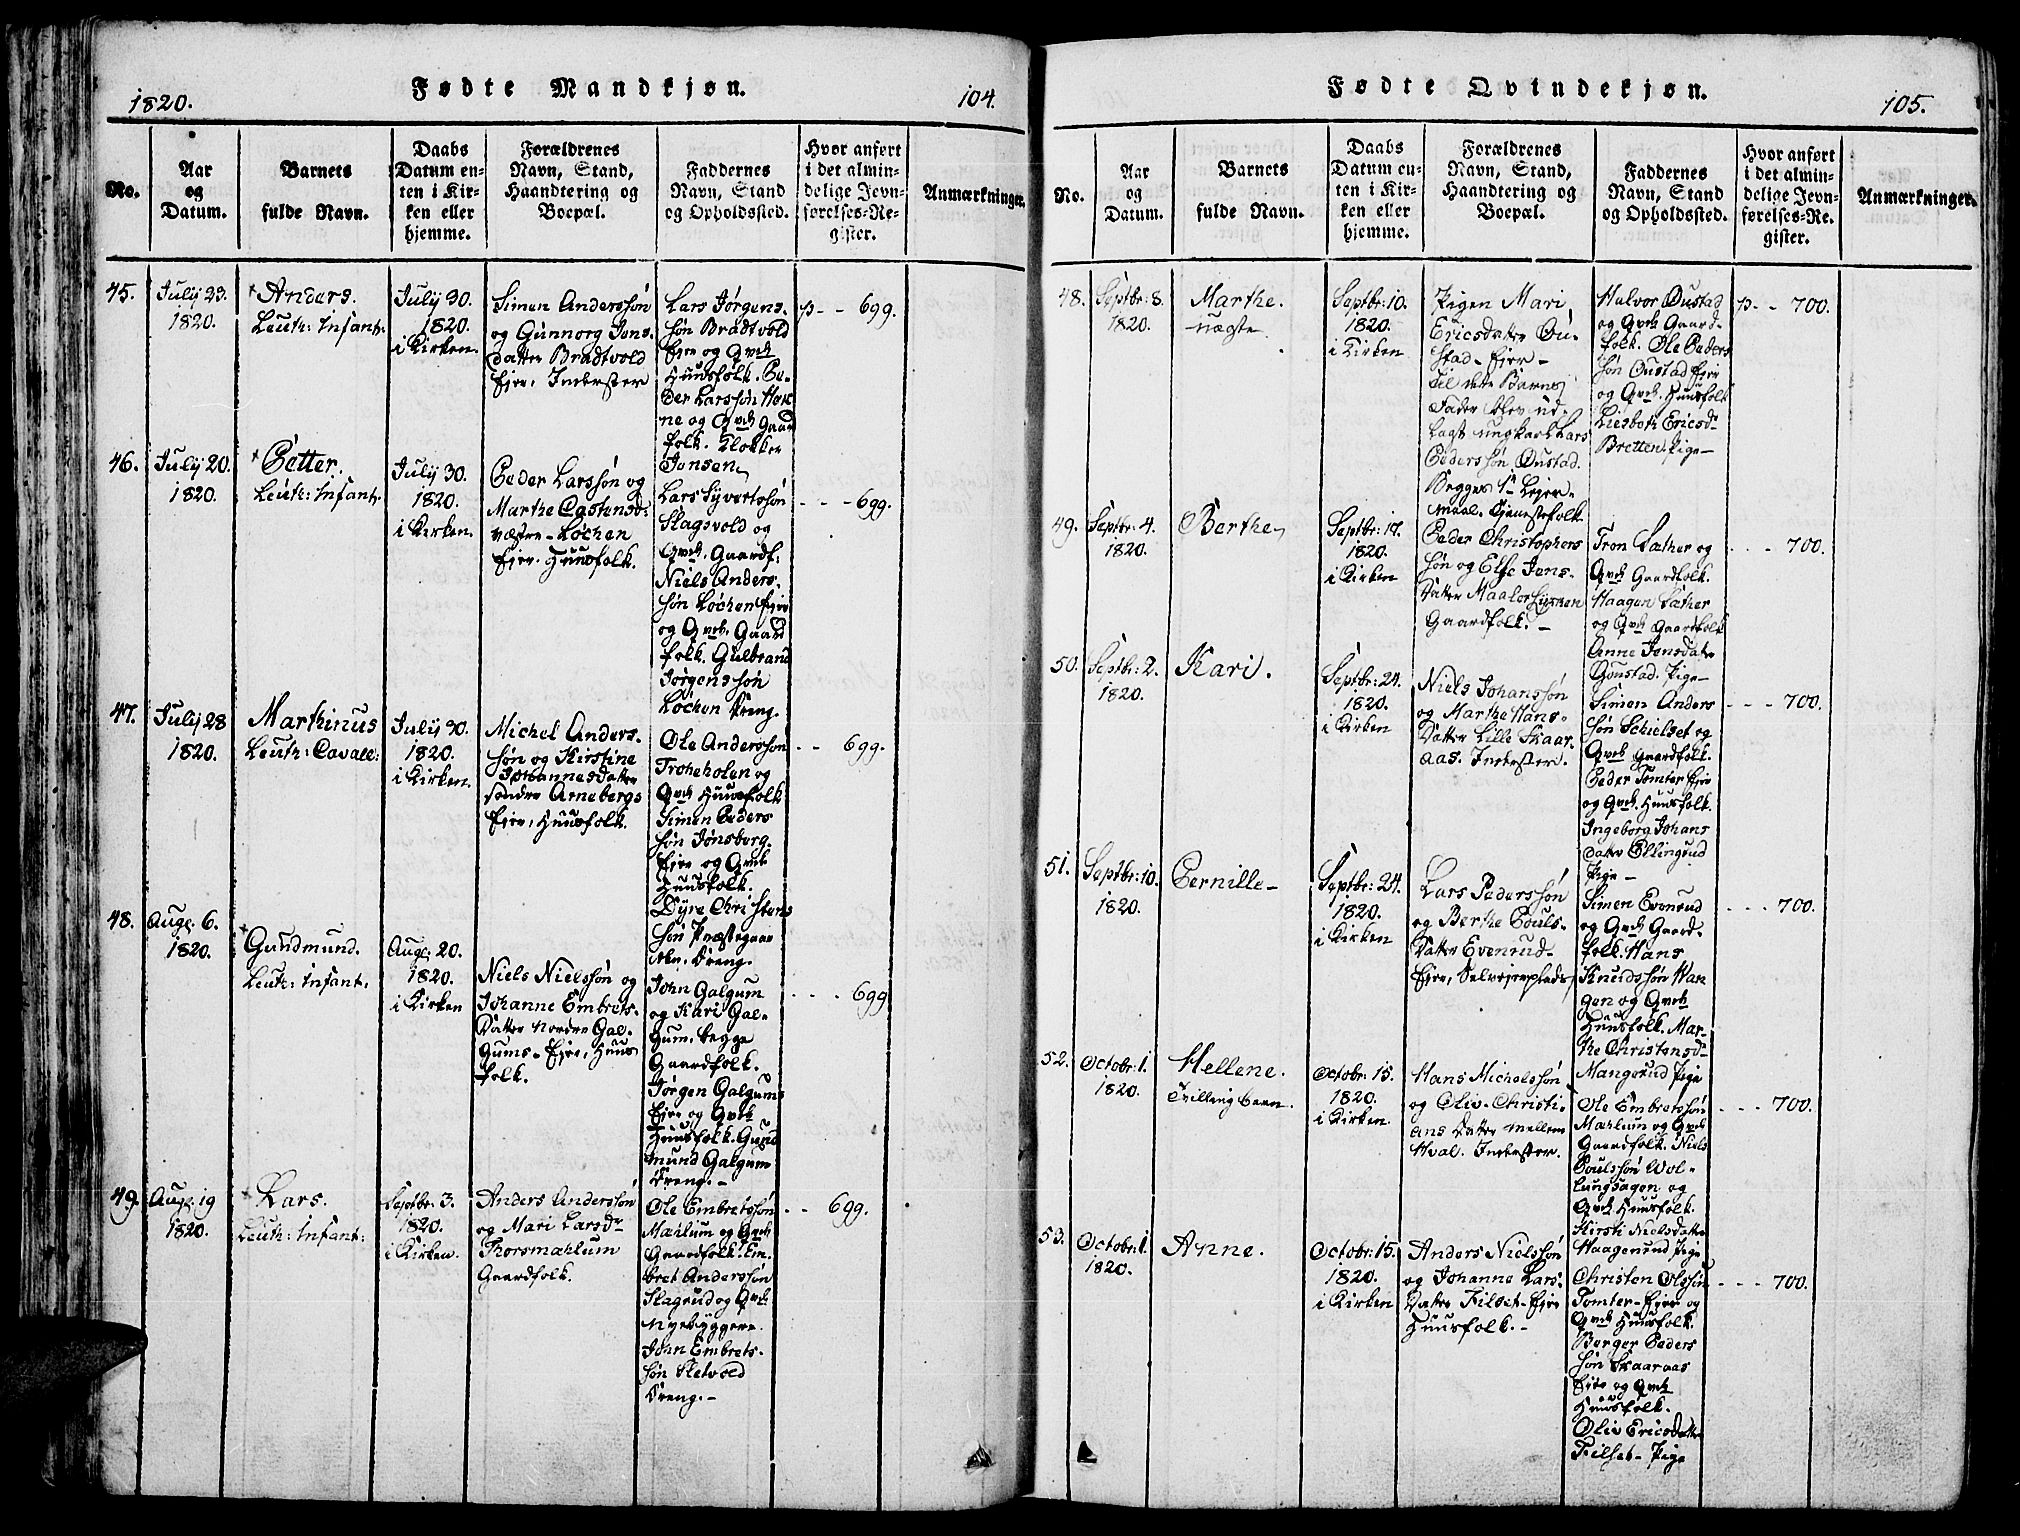 1820.
Fødte Mandkjøn.
104.
No.
Aar
og
Datum.
Barnets
fulde Navn.
Daabs
Datum en-
ten i Kir-
ken eller
hjemme.
Forældrenes
Navn, Stand,
Haandtering og
Boepæl.
Faddernes
Navn, Stand
og Opholdssted.
Hvor anført
i det almin-
delige Jevn-
førelses-Re-
gister.
Anmærkninger.
45.
July 23.
1820.
Anders.
Leuth: Infant:
July 30.
1820.
i Kirken.
Simen Anderssøn
og Gunnorg Jons
datter Bradtvold
Ejer, Inderster
Lars Jørgens
søn Bradtvold
Ejer og Qvek
Huusfolk. Pe-
der Larssøn Hok
ne og Qvek Gaard
folk. Klokker
Jonsen
p - - 699.
46.
July 20.
1820.
Petter.
Leuth: Infant.
July 30.
1820.
i Kirken.
Peder Larssøn og
Marthe Castensd:
væstre Løchen
Ejer. Huusfolk.
Lars Syvertssøn
Slagsvold og
Qvek. Gaardf.
Niels Anders.
søn Løchen Ejer
og Qvek. Gaard
folk. Gulbrand
Jørgenssøn
Løchen Dreng.
- - - 699.
47.
July 28
1820.
Marthinus
Leuth: Cavall:
July 30.
1820.
i Kirken.
Michel Anders.
søn og Kirstine
Johannesdatter
søndre Arnebergs
Ejer, Huusfolk.
Ole Anderssøn
Troheholen og
Qvek Huusfolk
Simen Peders
søn Jønsberg.
Ejer og Qvek
Huusfolk.
Dyre Christens
søn Præstegaar
den. Dreng.
- - 699.
48.
Aug: 6.
1820.
Gundmund.
Leuth: Infant.
Aug: 20.
1820.
i Kirken
Niels Nielssøn og
Johanne Embrets.
datter Nordre Gal-
gums- Ejer, Huus
folk.
John Galgum
og Kari Gal-
gum, begge
Gaardfolk.
Jørgen Galgums
Ejer og Qvek
Huusfolk. Gund
mund Galgum
Dreng. -
- - - 699
49.
Aug: 19
1820.
Lars.
Leuth: Infant:
Septbr. 3.
1820.
i Kirken.
Anders Anderssøn
og Mari Larsdr
Thorsmahlum
Gaardfolk.
Ole Embretssøn
Mahlum og Qvek
Gaardfolk. Em.
bret Anderssøn
Slagrud og Qvek
Nyebyggere.
John Embrets.
søn Sletvold
Dreng. -
- - 699.
Fødte Qvindekjøn.
105.
No.
Aar
og
Datum.
Barnets
fulde Navn.
Daabs
Datum en-
ten i Kir-
ken eller
hjemme.
Forældrenes
Navn, Stand,
Haandtering og
Boepæl.
Faddernes
Navn, Stand
og Opholdssted.
Hvor anført
i det almin-
delige Jevn-
førelses-Re-
gister.
Anmærkninger.
48.
Septbr: 8.
1820.
Marthe.
uægte
Septbr: 10.
1820.
i Kirken
Pigen Mari
Ericsdatter Ou-
stad- Ejer-
Til dette Barns
Fader blev ud-
lagt ungkarl Lars
Pederssøn Oustad.
Begges 1ste Lejer-
maal. Tjenestefolk.
Halvor Oustad
og Qvek Gaard-
folk. Ole Peders
søn Oustad Ejer
og Qvek. Huusfolk
Liesbeth Ericsdr
Bretten. Pige-
p - - 700.
49.
Septbr: 4.
1820.
Berthe
Septbr: 17.
1820.
i Kirken
Peder Christophers
søn og Else Jens-
datter
Gaardfolk. -
Tron Sæther og
Qvek Gaardfolk.
Haagen Sæther
og Qvek Gaardfolk
Anne Jonsdatr
Gonstad. Pige-
- - - 700.
50.
Septbr: 2.
1820.
Kari.
Septbr: 24.
1820.
i Kirken
Niels Johanssøn
og Marthe Hans-
datter Lille Skaar-
aas. Inderster.
Simen Anders
søn Schielset og
Qvek Gaardfolk.
Peder Tomter Ejer
og Qvek. Huusfolk.
Ingeborg Johans
datter Ellingsrud
Pige -
- - - 700.
51.
Septbr: 10.
1820.
Pernille-
Septbr: 24.
1820.
i Kirken
Lars Pederssøn
og Berthe Pouls-
datter Evensrud-
Ejer, Selvejerplads
Simen Evensrud
og Qvek Gaard-
folk. Hans
Knudssøn Han
gen og Qvek
Huusfolk. Mar-
the Christensdr
Mangsrud Pige
- - - 700.
52.
Octobr: 1.
1820.
Hellene.
Tvilling barn.
Octobr: 15.
1820.
i Kirken
Hans Michelssøn
og Oliv. Christi-
ans datter mellem
Hval. Inderster.
Ole Embretssøn
Mahlum og Qvek
Gaardfolk. Niels
Poulssøn Wol-
lungsagen og
Qvek Huusfolk.
Kirsti Nielsdatter
Haagensrud Pige
- - - 700.
53.
Octobr: 1.
1820.
Anne.
Octobr: 15.
1820.
i Kirken
Anders Nielssøn
og Johanne Lars-
datter Filset- Ejer
Huusfolk. -
Christen Olssøn
Tomter- Ejer og
Qvek Huusfolk.
Borger Peders
søn Skaaraas
Ejer og Qvek
Huusfolk.
Oliv Ericsdatter
Filset- Pige
- - - 700.